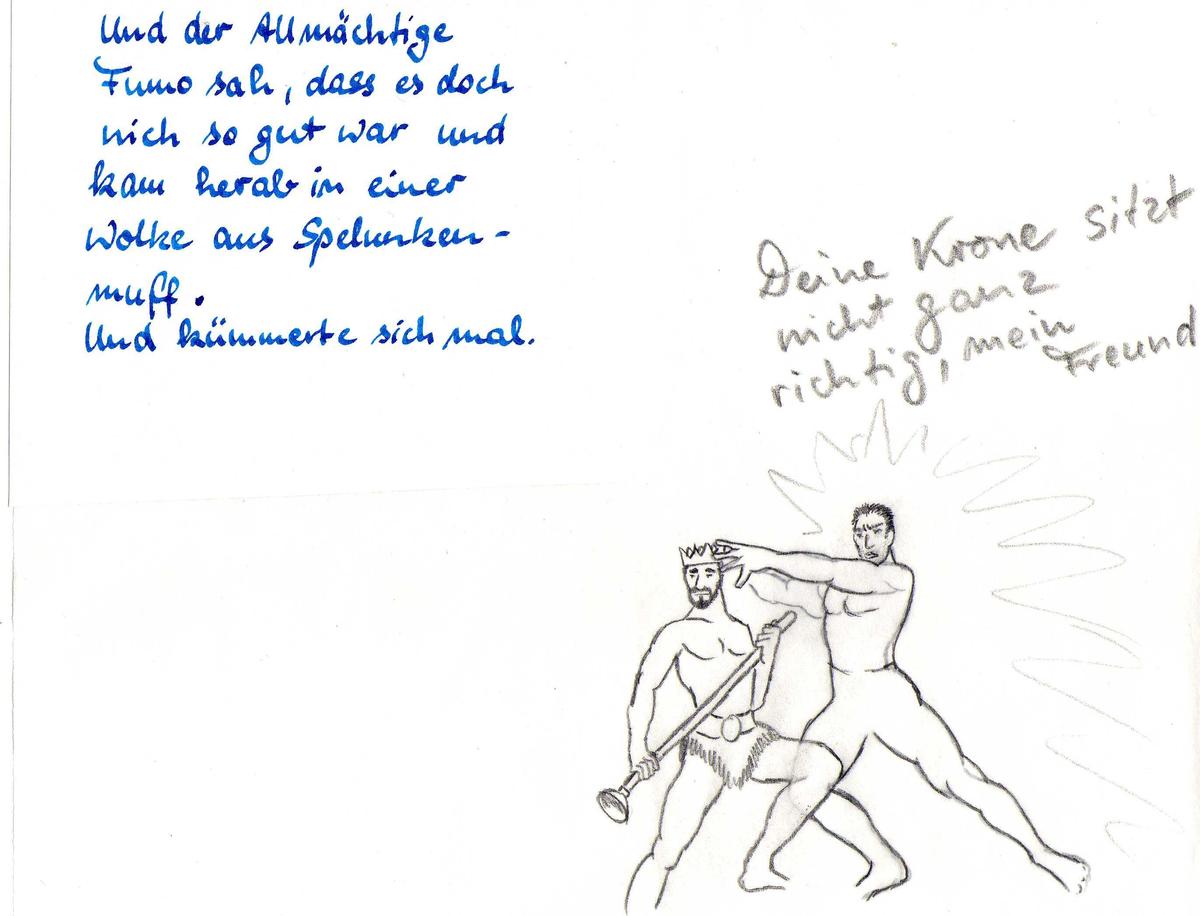 Und der Allmächtige
Fumo sah, dass es doch
nich so gut war und
kam herab in einer
Wolke aus Spelunken-
muff.
Und kümmerte sich mal.
Deine Krone sitzt
nicht ganz
richtig, mein
Freund